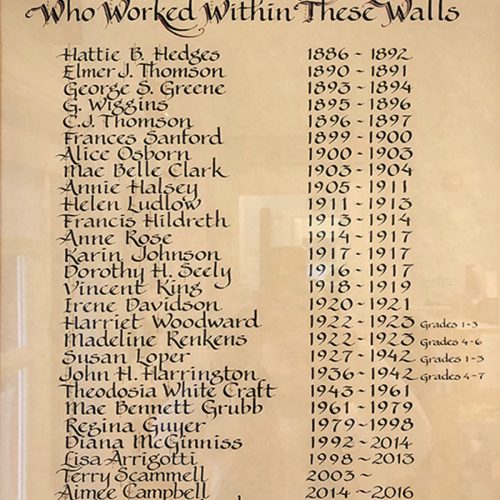 Who Worked Within These Walls
Hattie B. Hedges 1886 ~ 1892
Elmer J. Thomson 1890 ~ 1891
George S. Greene 1893 ~ 1894
G. Wiggins 1895 ~ 1896
C.J. Thomson 1896 ~ 1897
Frances Sanford 1899 ~ 1900
Alice Osborn 1900 ~ 1903
Mae Belle Clark 1903 ~ 1904
Annie Halsey 1905 ~ 1911
Helen Ludlow 1911 ~ 1913
Francis Hildreth 1913 ~ 1914
Anne Rose 1914 ~ 1917
Karin Johnson 1917 ~ 1917
Dorothy H. Seely 1916 ~ 1917
Vincent King 1918 ~ 1919
Irene Davidson 1920 ~ 1921
Harriet Woodward 1922 ~ 1923 Grades 1-3
Madeline Renkens 1922 ~ 1923 Grades 4-6
Susan Loper 1927 ~ 1942 Grades 1-3
John H. Harrington 1936 ~ 1942 Grades 4-7
Theodosia White Craft 1943 ~ 1961
Mae Bennett Grubb 1961 ~ 1979
Regina Guyer 1979 ~ 1998
Diana McGinniss 1992 ~ 2014
Lisa Arrigotti 1998 ~ 2013
Terry Scammell 2003 ~
Aimee Campbell 2014 ~ 2016